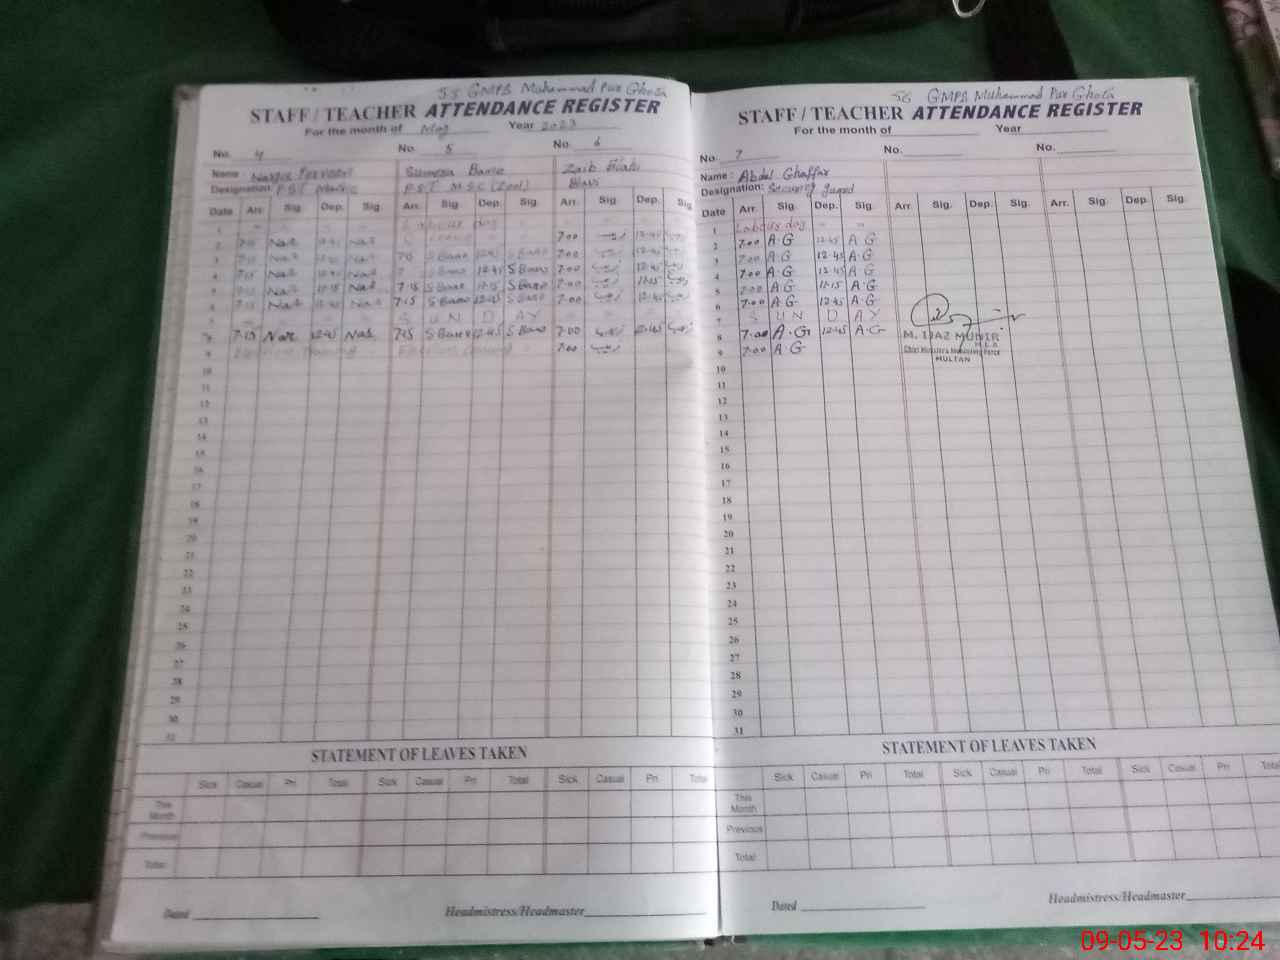 55 GMPS Muhammad Pur Ghota
STAFF / TEACHER ATTENDANCE REGISTER
For the month of May Year 2023
No. 4 No. 5 No. 6
Name Nargis Parveen Sumera Bano Zaib Elahi
Designation: PST Matric P.S.T M.SC (Zool)
Date Arr. Sig. Dep. Sig. Arr. Sig. Dep. Sig. Arr. Sig. Dep. Sig.
1 Labour day
2 7-15 Naz 12-45 Naz Leave 7.00 زیب 12-45 زیب
3 7-15 Naz 12-45 Naz 7-15 S Bano 12-45 S Bano 7.00 زیب 12-45 زیب
4 7-15 Naz 12-45 Naz S Bano 12-45 S Bano 7.00 زیب 12-45 زیب
5 7-15 Naz 12-15 Naz 7-15 S Bano 12-15 S Bano 7.00 زیب 12-15 زیب
6 7-15 Naz 12-45 Naz 7-15 S Bano 12-45 S Bano 7.00 زیب 12-45 زیب
7 S U N D A Y
8 7-15 Naz 12-45 Naz 7-15 S Bano 12-45 S Bano 7.00 زیب 12-45 زیب
9 7.00 زیب
10
11
12
13
14
15
16
17
18
19
20
21
22
23
24
25
26
27
28
29
30
31
STATEMENT OF LEAVES TAKEN
Sick Casual Pri Total Sick Casual Pri Total Sick Casual Pri Total
This Month
Previous
Total
Dated Headmistress/Headmaster
56 GMPS Muhammad Pur Ghota
STAFF / TEACHER ATTENDANCE REGISTER
For the month of Year
No. 7 No. No.
Name : Abdul Ghaffar
Designation: Security guard
Date Arr. Sig. Dep. Sig. Arr. Sig. Dep. Sig. Arr. Sig. Dep. Sig.
1 Labour day
2 7.00 A.G 12-45 A G
3 7.00 A G 12-45 A.G
4 7.00 A G 12-45 A.G
5 7.00 A G 12-15 A.G
6 7.00 A.G 12-45 A.G
7 S U N D A Y
8 7.00 A.G 12-45 A.G
9 7.00 A G
M. IJAZ MUNIR
M.E.A
Chief Minister's Monitoring Force
MULTAN
10
11
12
13
14
15
16
17
18
19
20
21
22
23
24
25
26
27
28
29
30
31
STATEMENT OF LEAVES TAKEN
Sick Casual Pri Total Sick Casual Pri Total Sick Casual Pri Total
This Month
Previous
Total
Dated Headmistress/Headmaster
09-05-23 10:24